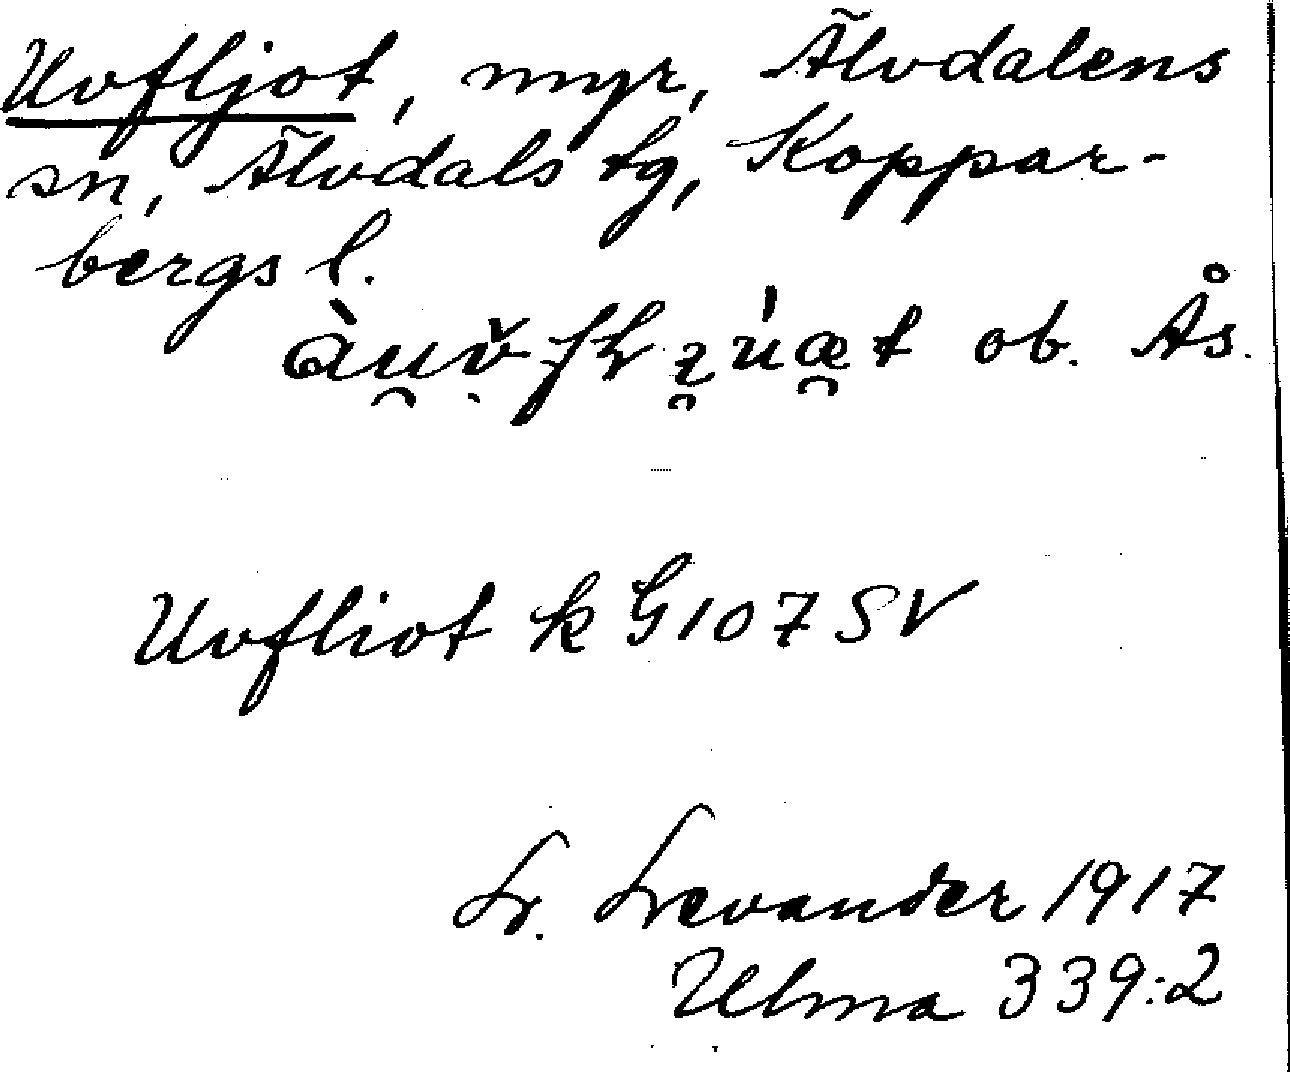 Uvfljot, myr, Älvdalens
sn, Älvdals tg, Koppar-
bergs l.
ob. Ås.
Uvfliot k G107 SV
L. Levander 1917
Ulma 339:2